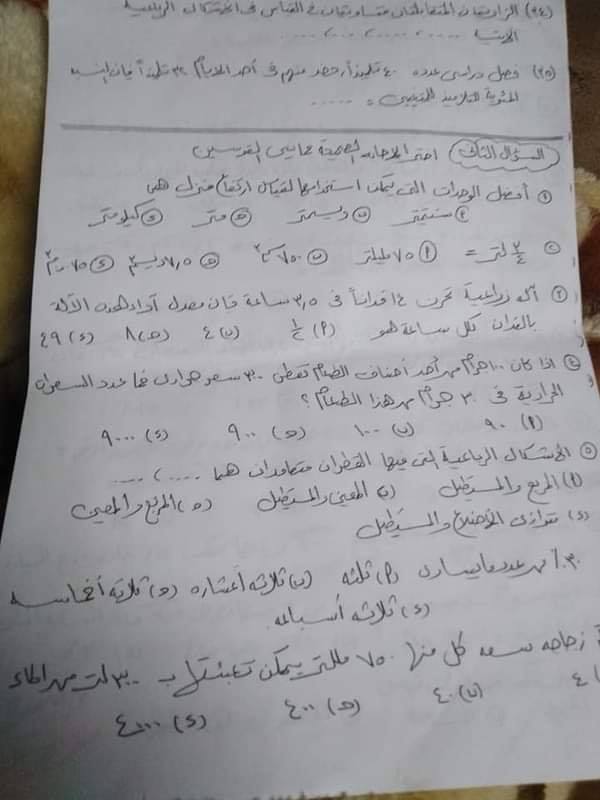 (٢٤) الزاويتان المتقابلتان متساويتان فى القياس فى الأشكال الرباعية
الآتية ..... ، ..... ، .....
(٢٥) فصل دراسى عدده ٤٠ تلميذاً حضر منهم فى أحد الأيام ٣٠ تلميذاً فإن النسبة
المئوية للتلاميذ المتغيبين = .....
السؤال الثانى اختر الإجابة الصحيحة مما بين القوسين
١ أفضل الوحدات التى يمكن استخدامها لقياس ارتفاع منزل هى
أ سنتيمتر ب ديسمتر ج متر د كيلومتر
٢ ٣/٤ لتر = أ ٧٥ مليلتر ب ٧٥٠ سم٣ ج ٧,٥ ديسم٣ د ٧٥ م٣
٣ آلة زراعية تحرث ١٤ فداناً فى ٣,٥ ساعة فإن معدل أداء هذه الآلة
بالفدان كل ساعة هو (أ) ١/٤ (ب) ٤ (ج) ٨ (د) ٤٩
٤ اذا كان ١٠٠ جرام من أحد أصناف الطعام تعطى ٣٠٠ سعر حرارى فما عدد السعرات
الحرارية فى ٣٠ جرام من هذا الطعام ؟
(أ) ٩٠ (ب) ١٠٠ (ج) ٩٠٠ (د) ٩٠٠٠
٥ الأشكال الرباعية التى فيها القطران متعامدان هما ..... ، .....
(أ) المربع والمستطيل (ب) المعين والمستطيل (ج) المربع والمعين
(د) متوازى الأضلاع والمستطيل
٣٠٪ من عدد ما يساوى (أ) ثلثه (ب) ثلاثة أعشاره (ج) ثلاثة أخماسه
(د) ثلاثة أسباعه
زجاجه سعة كل منها ٧٥٠ مللتر يمكن تعبئتها ب ٣٠٠ لتر من الماء
٤ (ب) ٤٠ (ج) ٤٠٠ (د) ٤٠٠٠